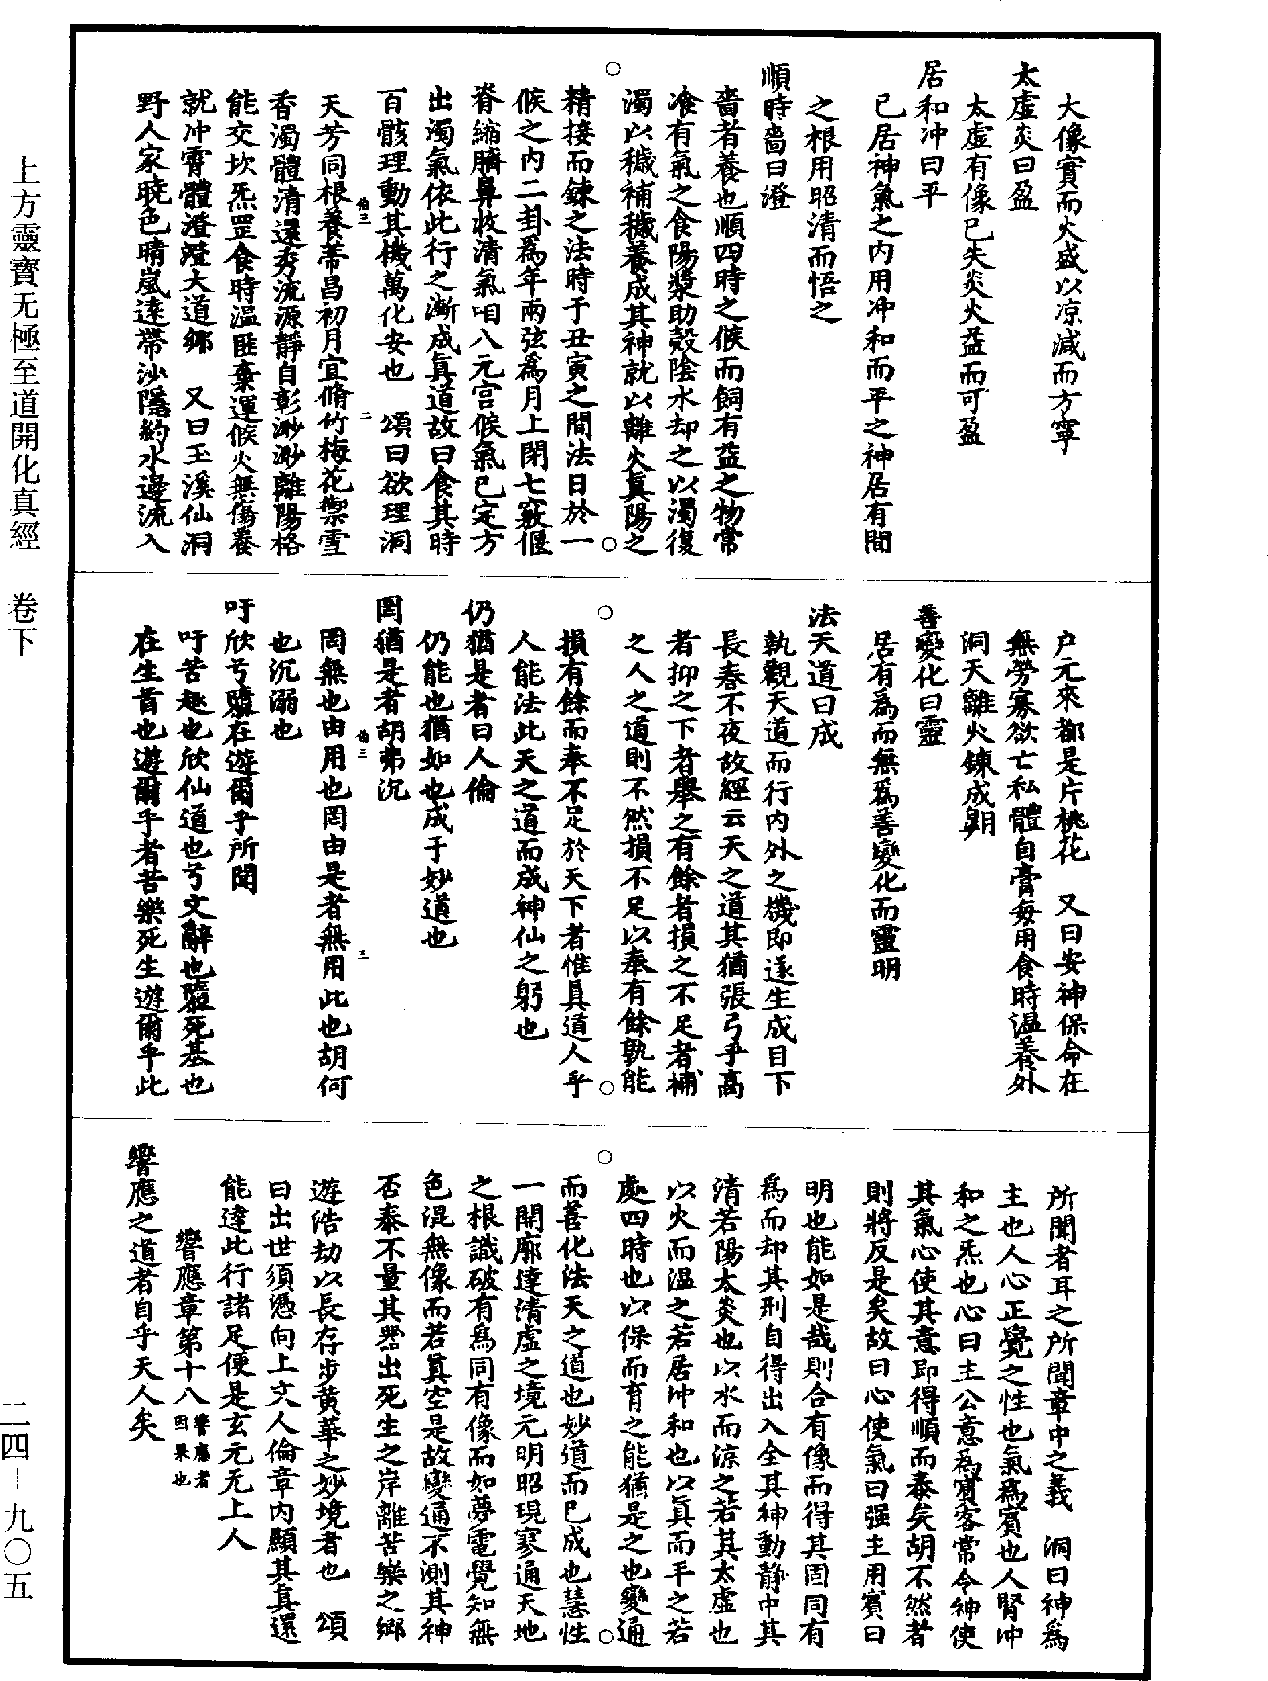 大像實而火盛以凉減而方寧
太虛炎曰盈
太虛有像已失炎火益而可盈
居和冲曰平
已居神氣之內用冲和而平之神居有間
之根用昭清而悟之
順時嗇曰澄
嗇者養也順四時之候而飼有益之物常
飡有氣之食陽漿助殼陰水却之以濁復
濁以穢補穢養成其神就以離火真陽之
精接而鍊之法時于丑寅之間法日於一
候之內二卦為年兩弦為月上閉七竅偃
脊縮臍鼻收清氣咱八元宮候氣已定方
出濁氣依此行之漸成真道故曰食其時
百骸理動其機萬化安也　頌曰欲理洞
天芳同根養蒂昌初月宜脩竹梅花禦雪
香濁體清還秀流源靜自彰渺渺離陽格
能交坎炁罡食時溫匪棄運候火無傷養
就冲霄體澄澄大道鄉　又曰玉溪仙洞
野人家曉色晴嵐遠帶沙隱約水邊流入
戶元來都是片桃花　又曰安神保命在
無勞寡欲亡私體自膏每用食時溫養外
洞天離火鍊成朙
善變化曰靈
居有為而無為善變化而靈明
法天道曰成
執觀天道而行內外之機即遂生成目下
長春不夜故經云天之道其猶張弓乎高
者抑之下者舉之有餘者損之不足者補
之人之道則不然損不足以奉有餘孰能
損有餘而奉不足於天下者惟真道人乎
人能法此天之道而成神仙之躬也
仍猶是者曰人倫
仍能也猶如也成于妙道也
罔猶是者胡弗沉
罔無也由用也罔由是者無用此也胡何
也沉溺也
吁欣兮隳在遊爾乎所聞
吁苦趣也欣仙道也兮文辭也隳死基也
在生首也遊爾乎者苦樂死生遊爾乎此
所聞者耳之所聞章中之義　洞曰神為
主也人心正覺之性也氣為賓也人腎冲
和之炁也心曰主公意為賓客常令神使
其氣心使其意即得順而泰矣胡不然者
則將反是矣故曰心使氣曰强主用賓曰
明也能如是哉則合有像而得其固同有
為而却其刑自得出入全其神動靜中其
清若陽太炎也以水而涼之若其太虛也
以火而溫之若居冲和也以真而平之若
處四時也以保而育之能猶是之也變通
而善化法天之道也妙道而已成也慧性
一開廓達清虛之境元明昭現寥通天地
之根識破有為同有像而如夢電覺知無
色混無像而若真空是故變通不測其神
否泰不量其器出死生之岸離苦樂之鄉
遊浩劫以長存步黃華之妙境者也　頌
曰出世須憑向上文人倫章內顯其真還
能達此行諸足便是玄元元上人
響應章第十八響應者因果也
響應之道者自乎天人矣
伯三
二
伯三
三
上方靈寶无極至道開化真經　卷下
二四－九〇五